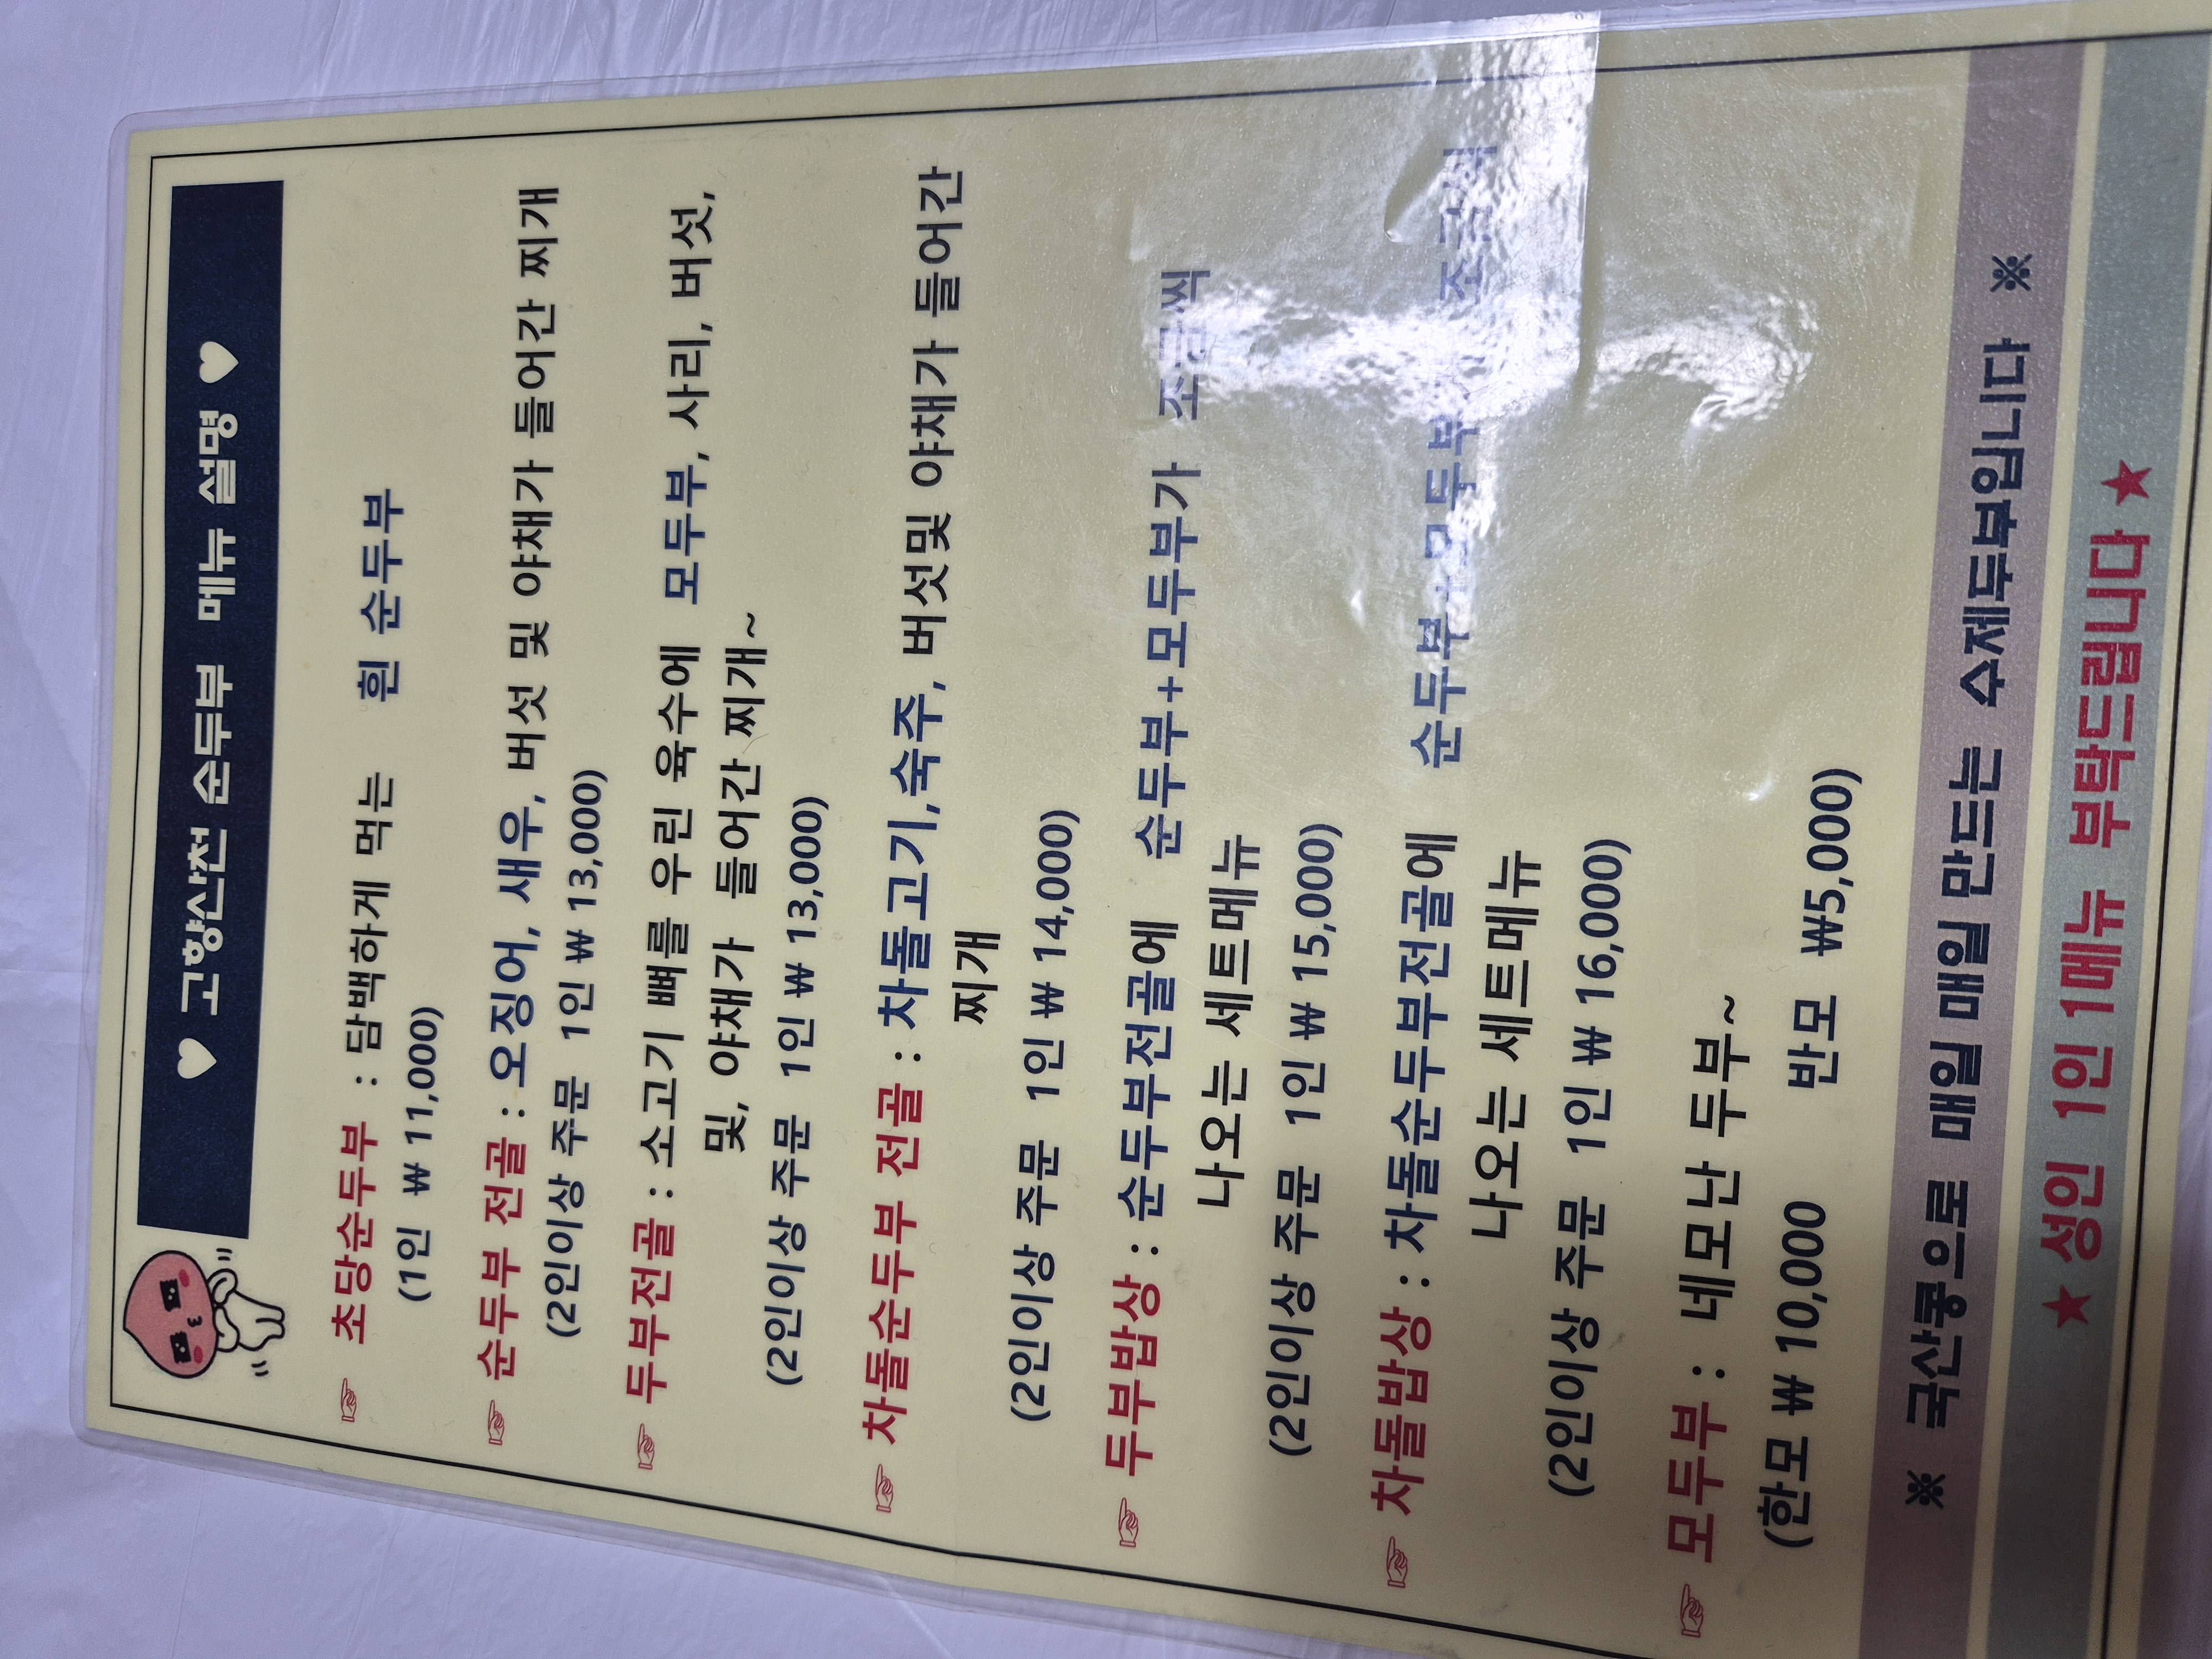 ♥ 고향산천 순두부 메뉴 설명 ♥
☞ 초당순두부 : 담백하게 먹는 흰 순두부
(1인 ₩ 11,000)
☞ 순두부 전골 : 오징어, 새우, 버섯 및 야채가 들어간 찌개
(2인이상 주문 1인 ₩ 13,000)
☞ 두부전골 : 소고기 뼈를 우린 육수에 모두부, 사리, 버섯,
및, 야채가 들어간 찌개~
(2인이상 주문 1인 ₩ 13,000)
☞ 차돌순두부 전골 : 차돌고기,숙주, 버섯및 야채가 들어간
찌개
(2인이상 주문 1인 ₩ 14,000)
☞ 두부밥상 : 순두부전골에 순두부+모두부가 조금씩
나오는 세트메뉴
(2인이상 주문 1인 ₩ 15,000)
☞ 차돌밥상 : 차돌순두부전골에 순두부+모두부가 조금씩
나오는 세트메뉴
(2인이상 주문 1인 ₩ 16,000)
☞ 모두부 : 네모난 두부~
(한모 ₩ 10,000 반모 ₩5,000)
※ 국산콩으로 매일 매일 만드는 수제두부입니다 ※
★ 성인 1인 1메뉴 부탁드립니다 ★